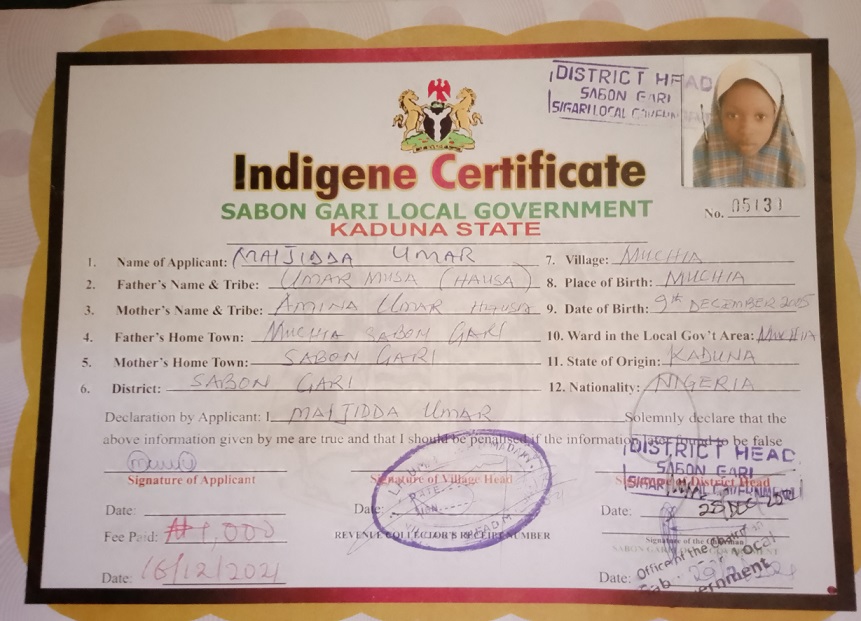 DISTRICT HEAD
SABON GARI
S/GARI LOCAL
Indigene Certificate
SABON GARI LOCAL GOVERNMENT
KADUNA STATE
No. 05131
1. Name of Applicant: MAIJIDDA UMAR
2. Father's Name & Tribe: UMAR MUSA (HAUSA)
3. Mother's Name & Tribe: AMINA UMAR HAUSA
4. Father's Home Town: MUCHIA SABON GARI
5. Mother's Home Town: SABON GARI
6. District: SABON GARI
7. Village: MUCHIA
8. Place of Birth: MUCHIA
9. Date of Birth: 9th DESEMBER 2005
10. Ward in the Local Gov't Area: MUCHIA
11. State of Origin: KADUNA
12. Nationality: NIGERIA
Declaration by Applicant: I MAIJIDDA UMAR Solemnly declare that the
above information given by me are true and that I should be penalised if the information later found to be false
DISTRICT HEAD
SABON GARI
Signature of Applicant
Signature of Village Head
Signature of District Head
Date:
Date:
DATE
SIGN
Date: 25 DEC
Fee Paid: ₦1,000
REVENUE COLLECTOR'S RECEIPT NUMBER
Signature of the Chairman
SABON GARI LOCAL GOVERNMENT
Date: 16/12/2021
Date:
Office of the Chairman
Local